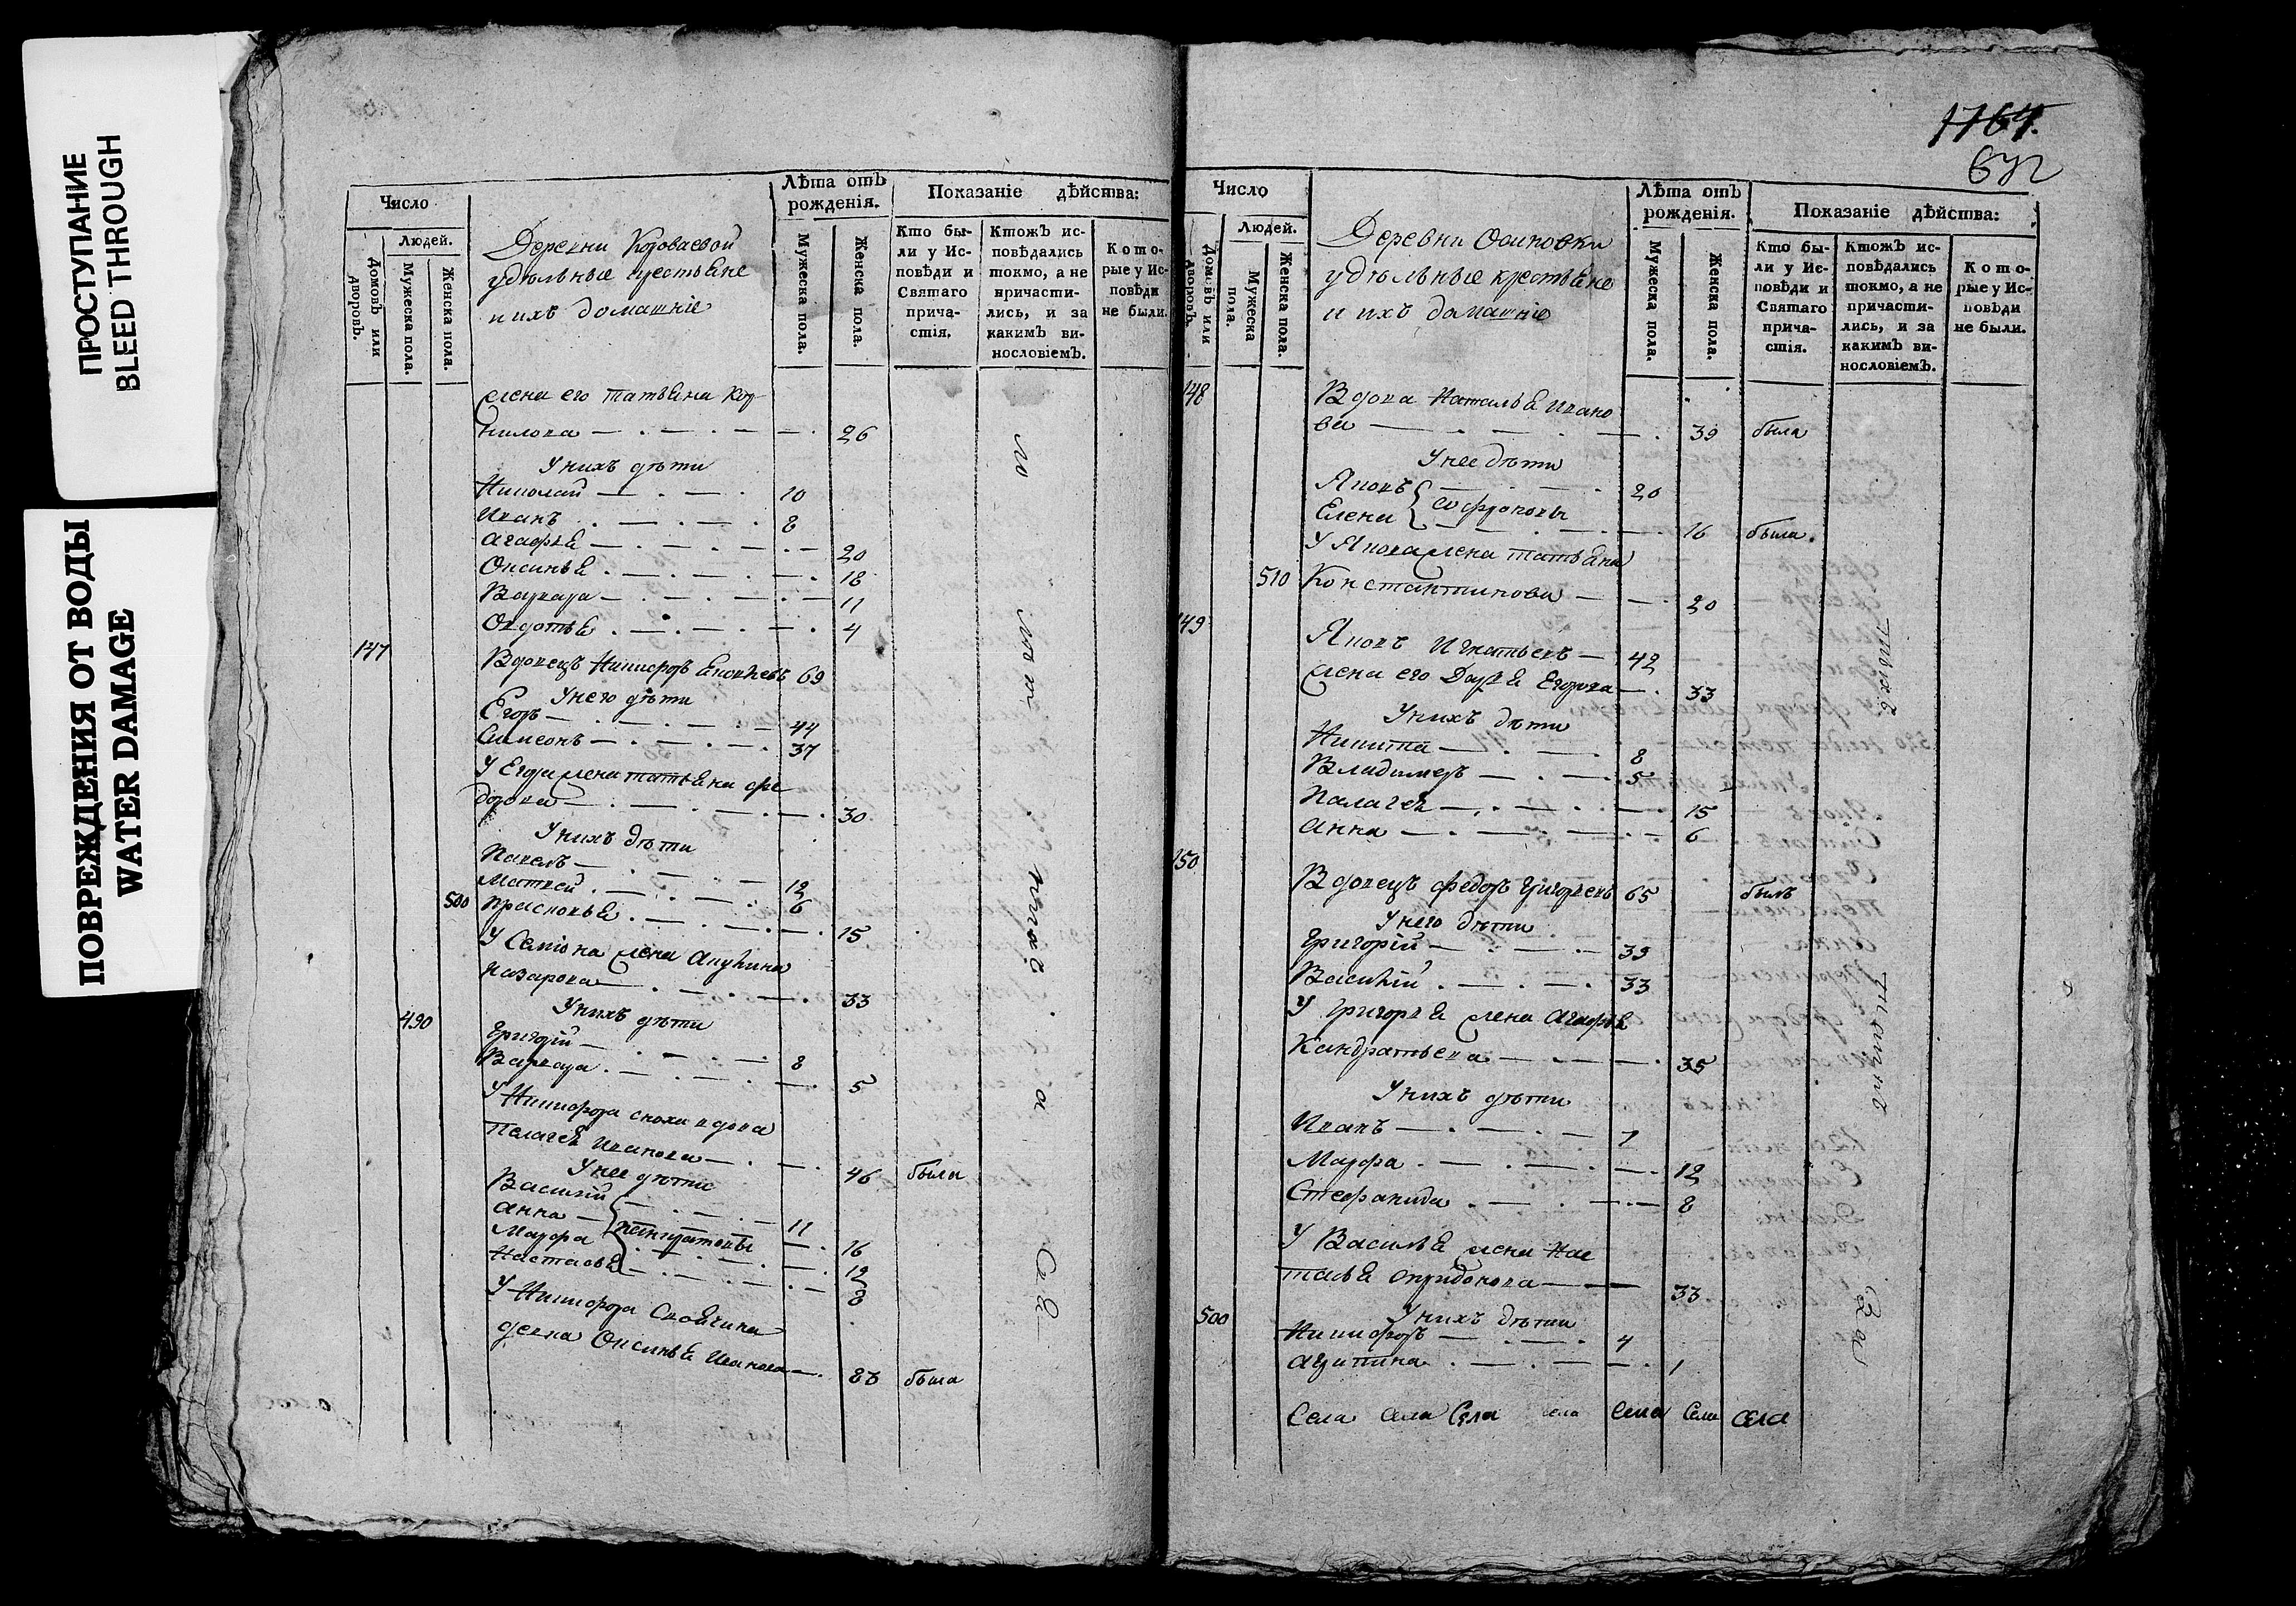 ПРОСТУПАНИЕ
BLEED THROUGH
ПОВРЕЖДЕНИЯ ОТ ВОДЫ
WATER DAMAGE
Число
Людей.
Домовъ или дворовъ.
Мужеска пола.
Женска пола.
Деревни Короваевой
удѣльные крестьяне
и ихъ домашніе
Лѣта отъ рожденія.
Мужеска пола.
Женска пола.
Показаніе дѣйства:
Кто были у Исповѣди и Святаго причастія.
Ктожъ исповѣдались токмо, а не причастились, и за какимъ винословіемъ.
Которые у Исповѣди не были.
жена его татьяна Кор-
нилова 26
У нихъ дѣти
Николай 10
Иванъ 8
Агафья 20
Оксинья 18
Варвара 11
Овдотья 4
147
Вдовецъ Никифоръ 69
У него дѣти
Егоръ 44
Симеонъ 37
У Егора жена татьяна фе
дорова 30
У нихъ дѣти
Павелъ 12
Матвей 6
500 Прасковья 15
У Семіона жена Акулина
Назарова 33
У нихъ дѣти
490
Григорій 8
Варвара 5
У Никифора сноха вдова
Пелагея Иванова 46 была
У нее дѣти
Василій 11
Анна 16
Марфа 12
Настасья 8
У Никифора Своячина
девка Оксинья Иванова 88 была
1764.
642
Число
Людей.
Домовъ или дворовъ.
Мужеска пола.
Женска пола.
Деревни Осиновки
удѣльные крестьяне
и ихъ домашніе
Лѣта отъ рожденія.
Мужеска пола.
Женска пола.
Показаніе дѣйства:
Кто были у Исповѣди и Святаго причастія.
Ктожъ исповѣдались токмо, а не причастились, и за какимъ винословіемъ.
Которые у Исповѣди не были.
148 Вдова Наталья Ивано
ва 39 была
У нее дѣти
Яковъ 20
софроновы
Елена 16 была.
У Якова жена татьяна
510 Константинова 20
149
Яковъ Игнатьевъ 42
жена его Дарья Егорова 33
У нихъ дѣти
Никита 8
Владимеръ 5
Палагея 15
Анна 6
150
Вдовецъ федоръ Григорьевъ 65 былъ
У него дѣти
Григорій 39
Василій 33
У Григорья жена Агафья
Кандратьева 35
У нихъ дѣти
Иванъ 1
Марфа 12
Стефанида 8
У Василья жена Нас
тасья спридонова 33
500 У нихъ дѣти
Никифоръ 4
1
Села села Села села Села Села села